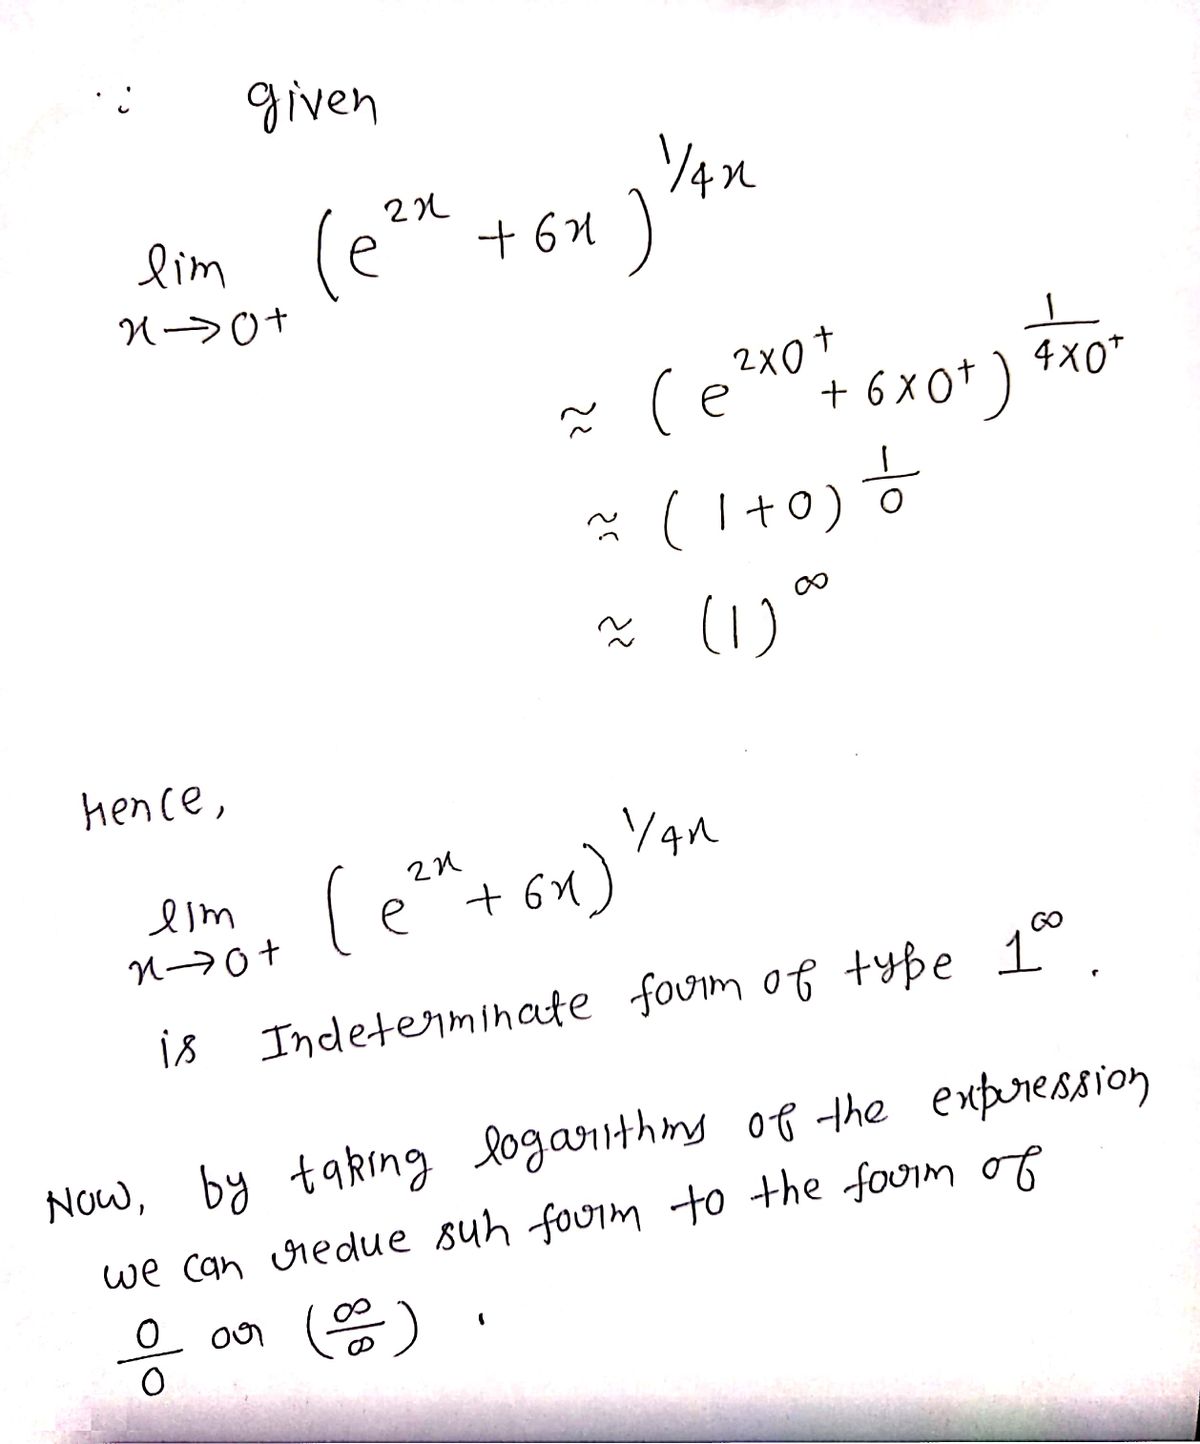 ∵ given
lim x→0+ (e^{2x} + 6x)^{1/4x}
≈ (e^{2×0+} + 6×0+)^{1/(4×0+)}
≈ (1+0)^{1/0}
≈ (1)^∞
Hence,
lim x→0+ (e^{2x} + 6x)^{1/4x}
is Indeterminate form of type 1^∞.
Now, by taking logarithms of the expression
we can redue suh form to the form of
0/0 or (∞/∞).